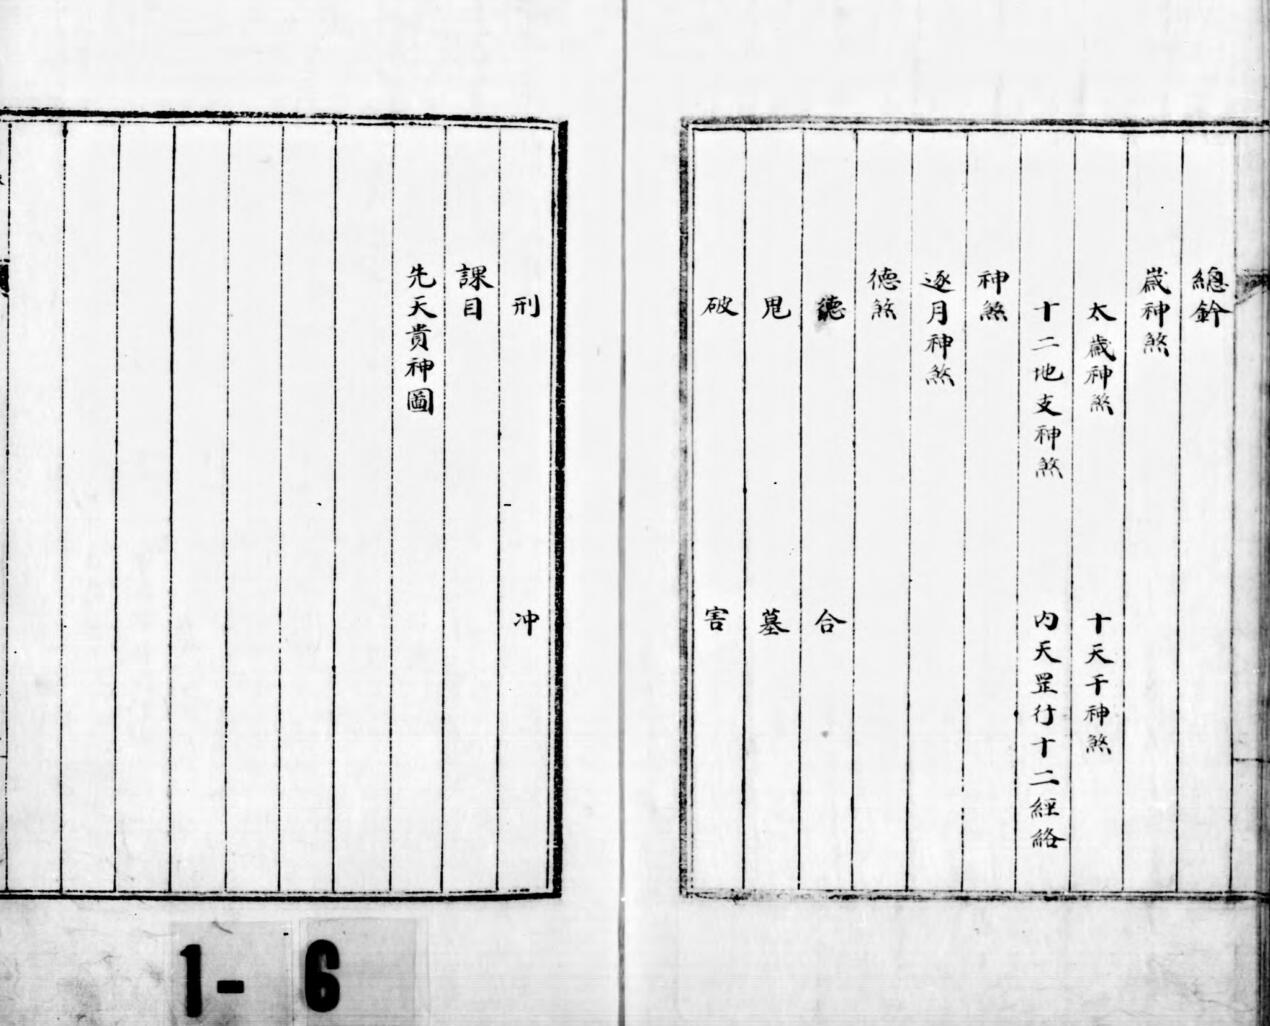 總鈐
嵗神煞
太嵗神煞　十天干神煞
十二地支神煞　内天罡行十二經絡
神煞
逐月神煞
德煞
德　合
鬼　墓
破　害
刑　冲
課目
先天貴神圖
1-6